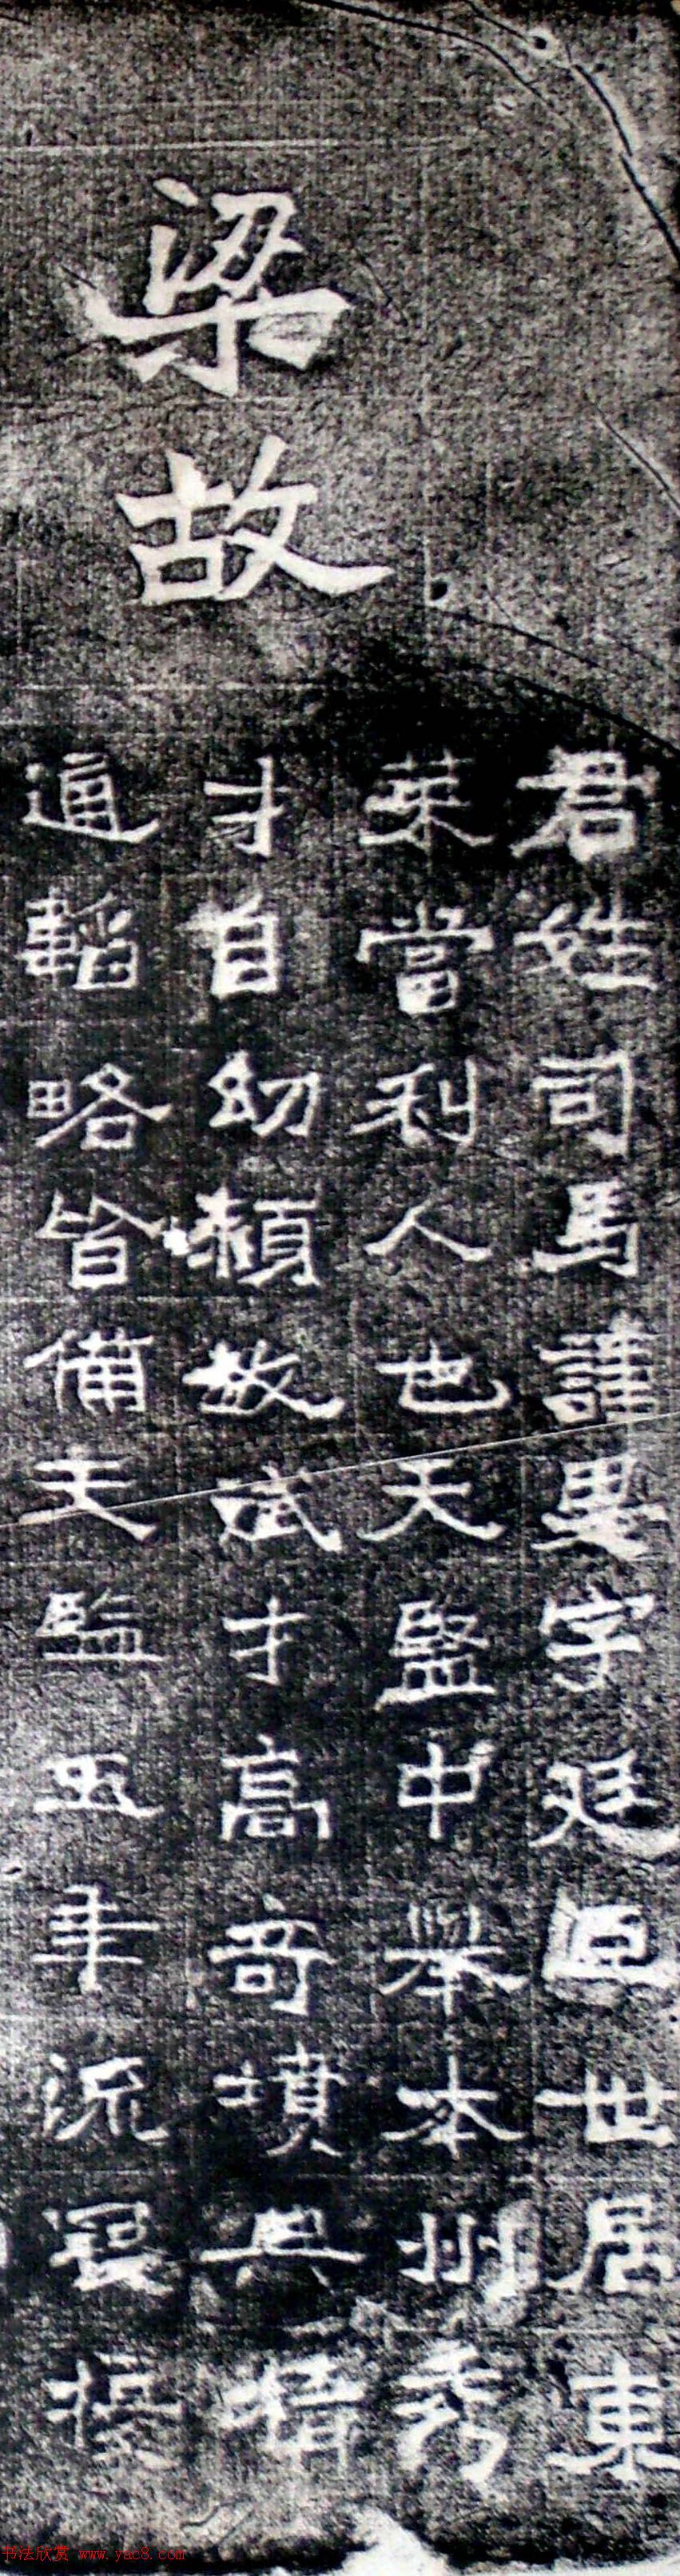 梁故
君姓司馬諱字廷世居東
萊當利人也天監中舉本州秀
才自幼頴故試才高奇墳典精
通韜略皆備天監五年流寇擾
书法欣赏 www.yac8.com